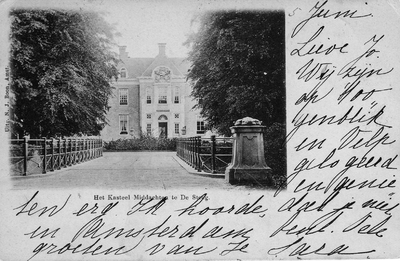 5 Juni
Lieve Jo.
Wij zijn
op 't oo
genblik
in Velp
gelogeerd
en genie
Uitg. N. J. Boon, Amst.
Het Kasteel Middachten te De Steeg.
ten erg. Ik hoorde, dat je niet
in Amsterdam bent. Vele
groeten van je Sara